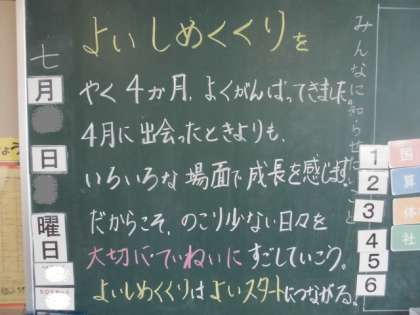 よいしめくくりを
やく4か月、よくがんばってきました。
4月に出会ったときよりも、
いろいろな場面で成長を感じます。
だからこそ、のこり少ない日々を
大切に・ていねいにすごしていこう。
よいしめくくりはよいスタートにつながる。
七
月
日
曜日
みんなに知らせること
1 国
2 算
3 体
4 社
5
6